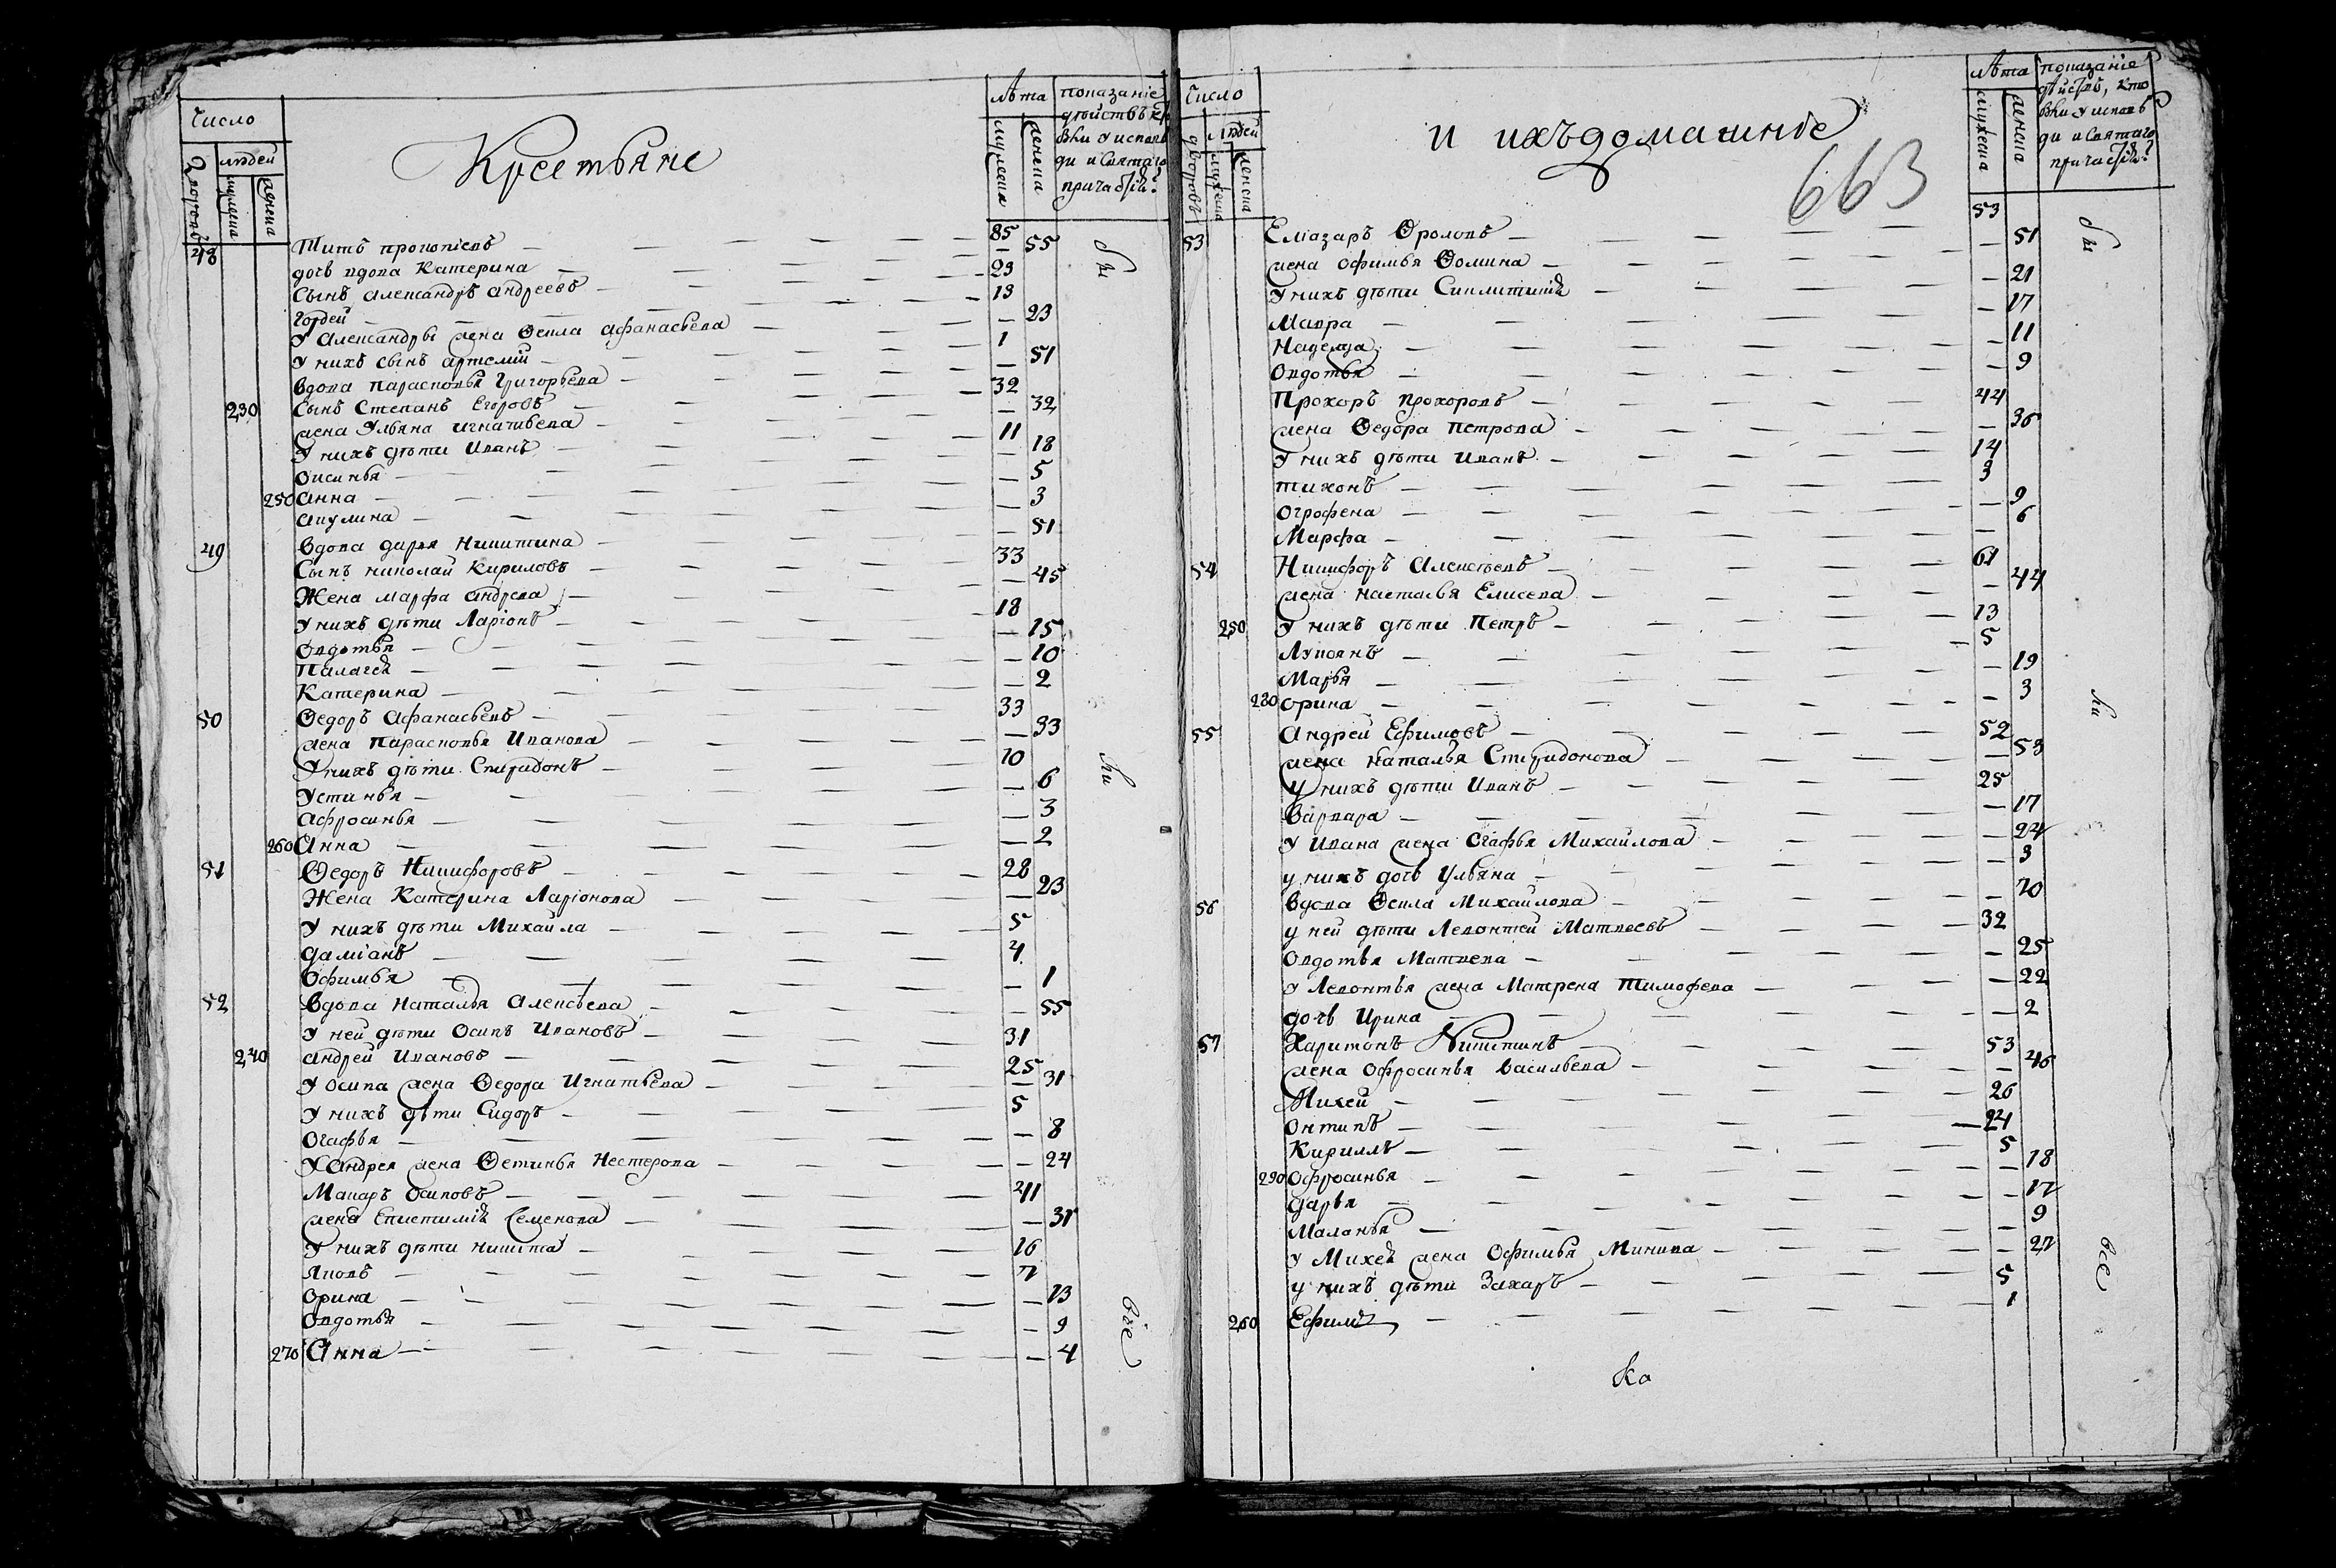 Число
людей
дворовъ
мужеска
женска
Крестьяне
лѣта
мужеска
женска
показаніе
дѣйствъ кто
былъ у испов
ди и святаго
причастія?
48 Титъ прокопіевъ — 85
дочь вдова Катерина — 55
Сынъ александръ андреевъ — 23
Гордей — 13
У Александры жена Ѳекла афанасьева — 23
У нихъ сынъ артемій — 1
вдова парасковья Григорьева — 51
230 Сынъ Степанъ Егоровъ — 32
жена Ульяна игнатьева — 32
У нихъ дѣти Иванъ — 11
Оксинья — 18
250 анна — 5
акулина — 3
49 вдова дарья Никитина — 51
Сынъ николай Кириловъ — 33
Жена марфа андреева — 45
У нихъ дѣти Ларіонъ — 18
Овдотья — 15
Палагея — 10
Катерина — 2
50 Ѳедоръ афанасьевъ — 33
жена парасковья Иванова — 33
У нихъ дѣти Спиридонъ — 10
Устинья — 6
афросинья — 3
260 Анна — 2
51 Ѳедоръ Никифоровъ — 28
Жена Катерина Ларіонова — 23
У нихъ дѣти Михайла — 5
даміанъ — 4
Офимья — 1
52 Вдова наталья алексѣева — 55
У ней дѣти Осипъ Ивановъ — 31
240 андрей Ивановъ — 25
У осипа жена Ѳедора Игнатьева — 31
У нихъ дѣти Сидоръ — 5
Огафья — 8
У Андрея жена Ѳетинья Нестерова — 24
Макаръ осиповъ — 41
жена Епистимія Семенова — 31
У нихъ дѣти никита — 16
Яковъ — 7
орина — 13
Овдотья — 9
270 Анна — 4
были
всѣ
Число
людей
дворовъ
мужеска
женска
и ихъ домашніе
663
лѣта
мужеска
женска
показаніе
дѣйствъ, кто
былъ у исповѣ
ди и святаго
причастія?
53 Елиазаръ Ѳроловъ — 53
жена офимья Ѳомина — 51
У нихъ дѣти Синклитикія — 21
Мавра — 17
Надежда — 11
Овдотья — 9
Прохоръ прохоровъ — 44
жена Ѳедора петрова — 36
У нихъ дѣти Иванъ — 14
тихонъ — 3
Огрофена — 9
Марфа — 6
54 Никифоръ Алексѣевъ — 61
жена настасья Елисеева — 44
250 У нихъ дѣти Петръ — 13
Лукоянъ — 5
Марья — 19
280 орина — 3
55 Андрей Ефимовъ — 52
жена наталья Спиридонова — 53
У нихъ дѣти Иванъ — 25
Варвара — 17
У Ивана жена Огафья Михайлова — 24
у нихъ дочь Ульяна — 3
56 Вдова Ѳекла Михайлова — 70
у ней дѣти Левонтей Матвеевъ — 32
Овдотья Матвеева — 25
У Левонтья жена Матрена Тимофеева — 22
дочь Ирина — 2
57 Харитонъ Никитинъ — 53
жена офросинья васильева — 46
Михей — 26
Онтипъ — 24
Кириллъ — 5
290 офросинья — 18
дарья — 17
Маланья — 9
У Михея жена Офимья Минина — 27
у нихъ дѣти Захаръ — 5
260 Ефимъ — 1
были
всѣ
Ка